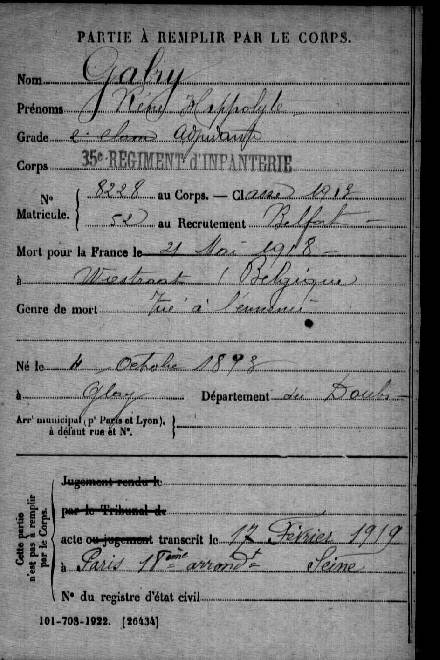 PARTIE À REMPLIR PAR LE CORPS.
Nom Gabry
Prénoms René Hippolyte
Grade 2e classe Adjudant
Corps 35e REGIMENT d'INFANTERIE
No Matricule. 8228 au Corps. — Classe 1913
52 au Recrutement Belfort
Mort pour la France le 21 Mai 1918
à (Belgique
Genre de mort Tué à l'ennemi
Né le 4 Octobre 1893
à Glay Département du Doubs
Arrt municipal (pr Paris et Lyon),
à défaut rue et No.
Cette partie n'est pas à remplir par le Corps.
Jugement rendu le
par le Tribunal de
acte ou jugement transcrit le 17 Février 1919
à Paris 18ème arrondt Seine
No du registre d'état civil
101-708-1922. [26434]